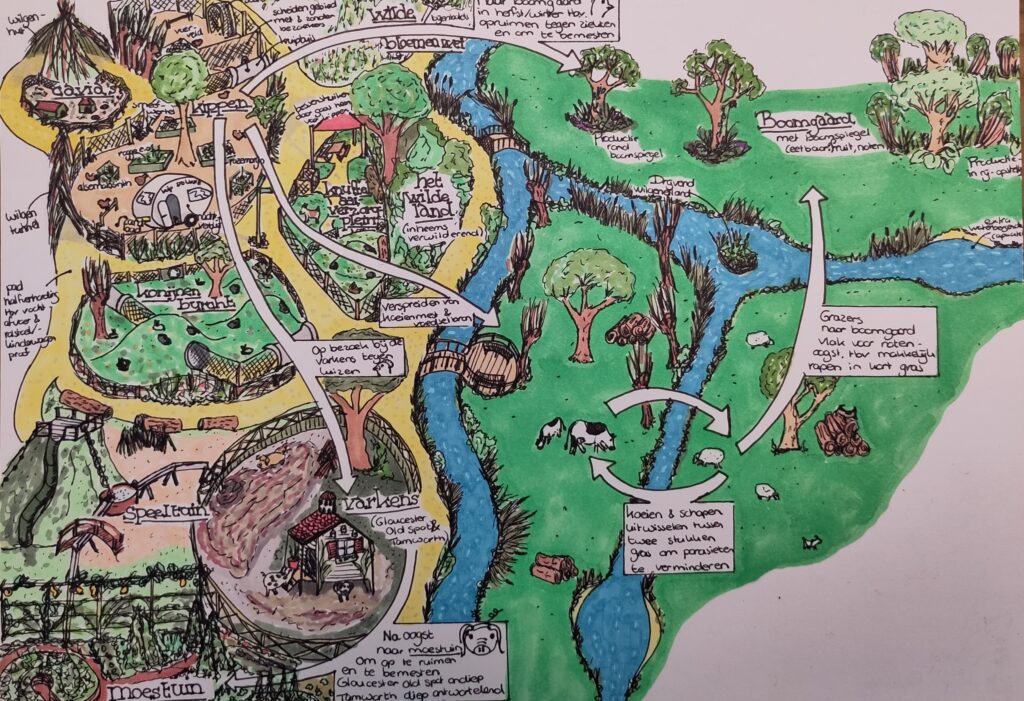 wilgen-
hut
scheidengebied
met & zonder
bezoekers
kruiptuil
Wilde
bloemenwei
naar boomgaard
in herfst/winter tbv.
opruimen tegen ziekten
en om te bemesten
voer
cavia's
kippen
wilgen
tunnel
pad
halfverharding
tbv vocht
afvoer &
rolstoel-/
kinderwagen
proof
het
wilde
land
(inheems
verwilderend)
konijnen
buurt
Productie
rond
boomspiegel
Boomgaard
met boomspiegel
(eetbaar, fruit, noten)
Productie
in rij-opstelling
Drijvend
wilgeneiland
extra
waterberging
(capaciteit)
Verspreiden van
koeienmest &
voedselbron
Op bezoek bij de
varkens tegen
luizen
Grazers
naar boomgaard
vlak voor noten-
oogst, tbv makkelijk
rapen in kort gras
Speeltuin
Varkens
(Gloucester
Old Spot &
Tamworth)
Koeien & schapen
uitwisselen tussen
twee stukken
gras om parasieten
te verminderen
Moestuin
Na oogst
naar moestuin
Om op te ruimen
en te bemesten
Gloucester Old Spot ondiep
Tamworth diep ontwortelend